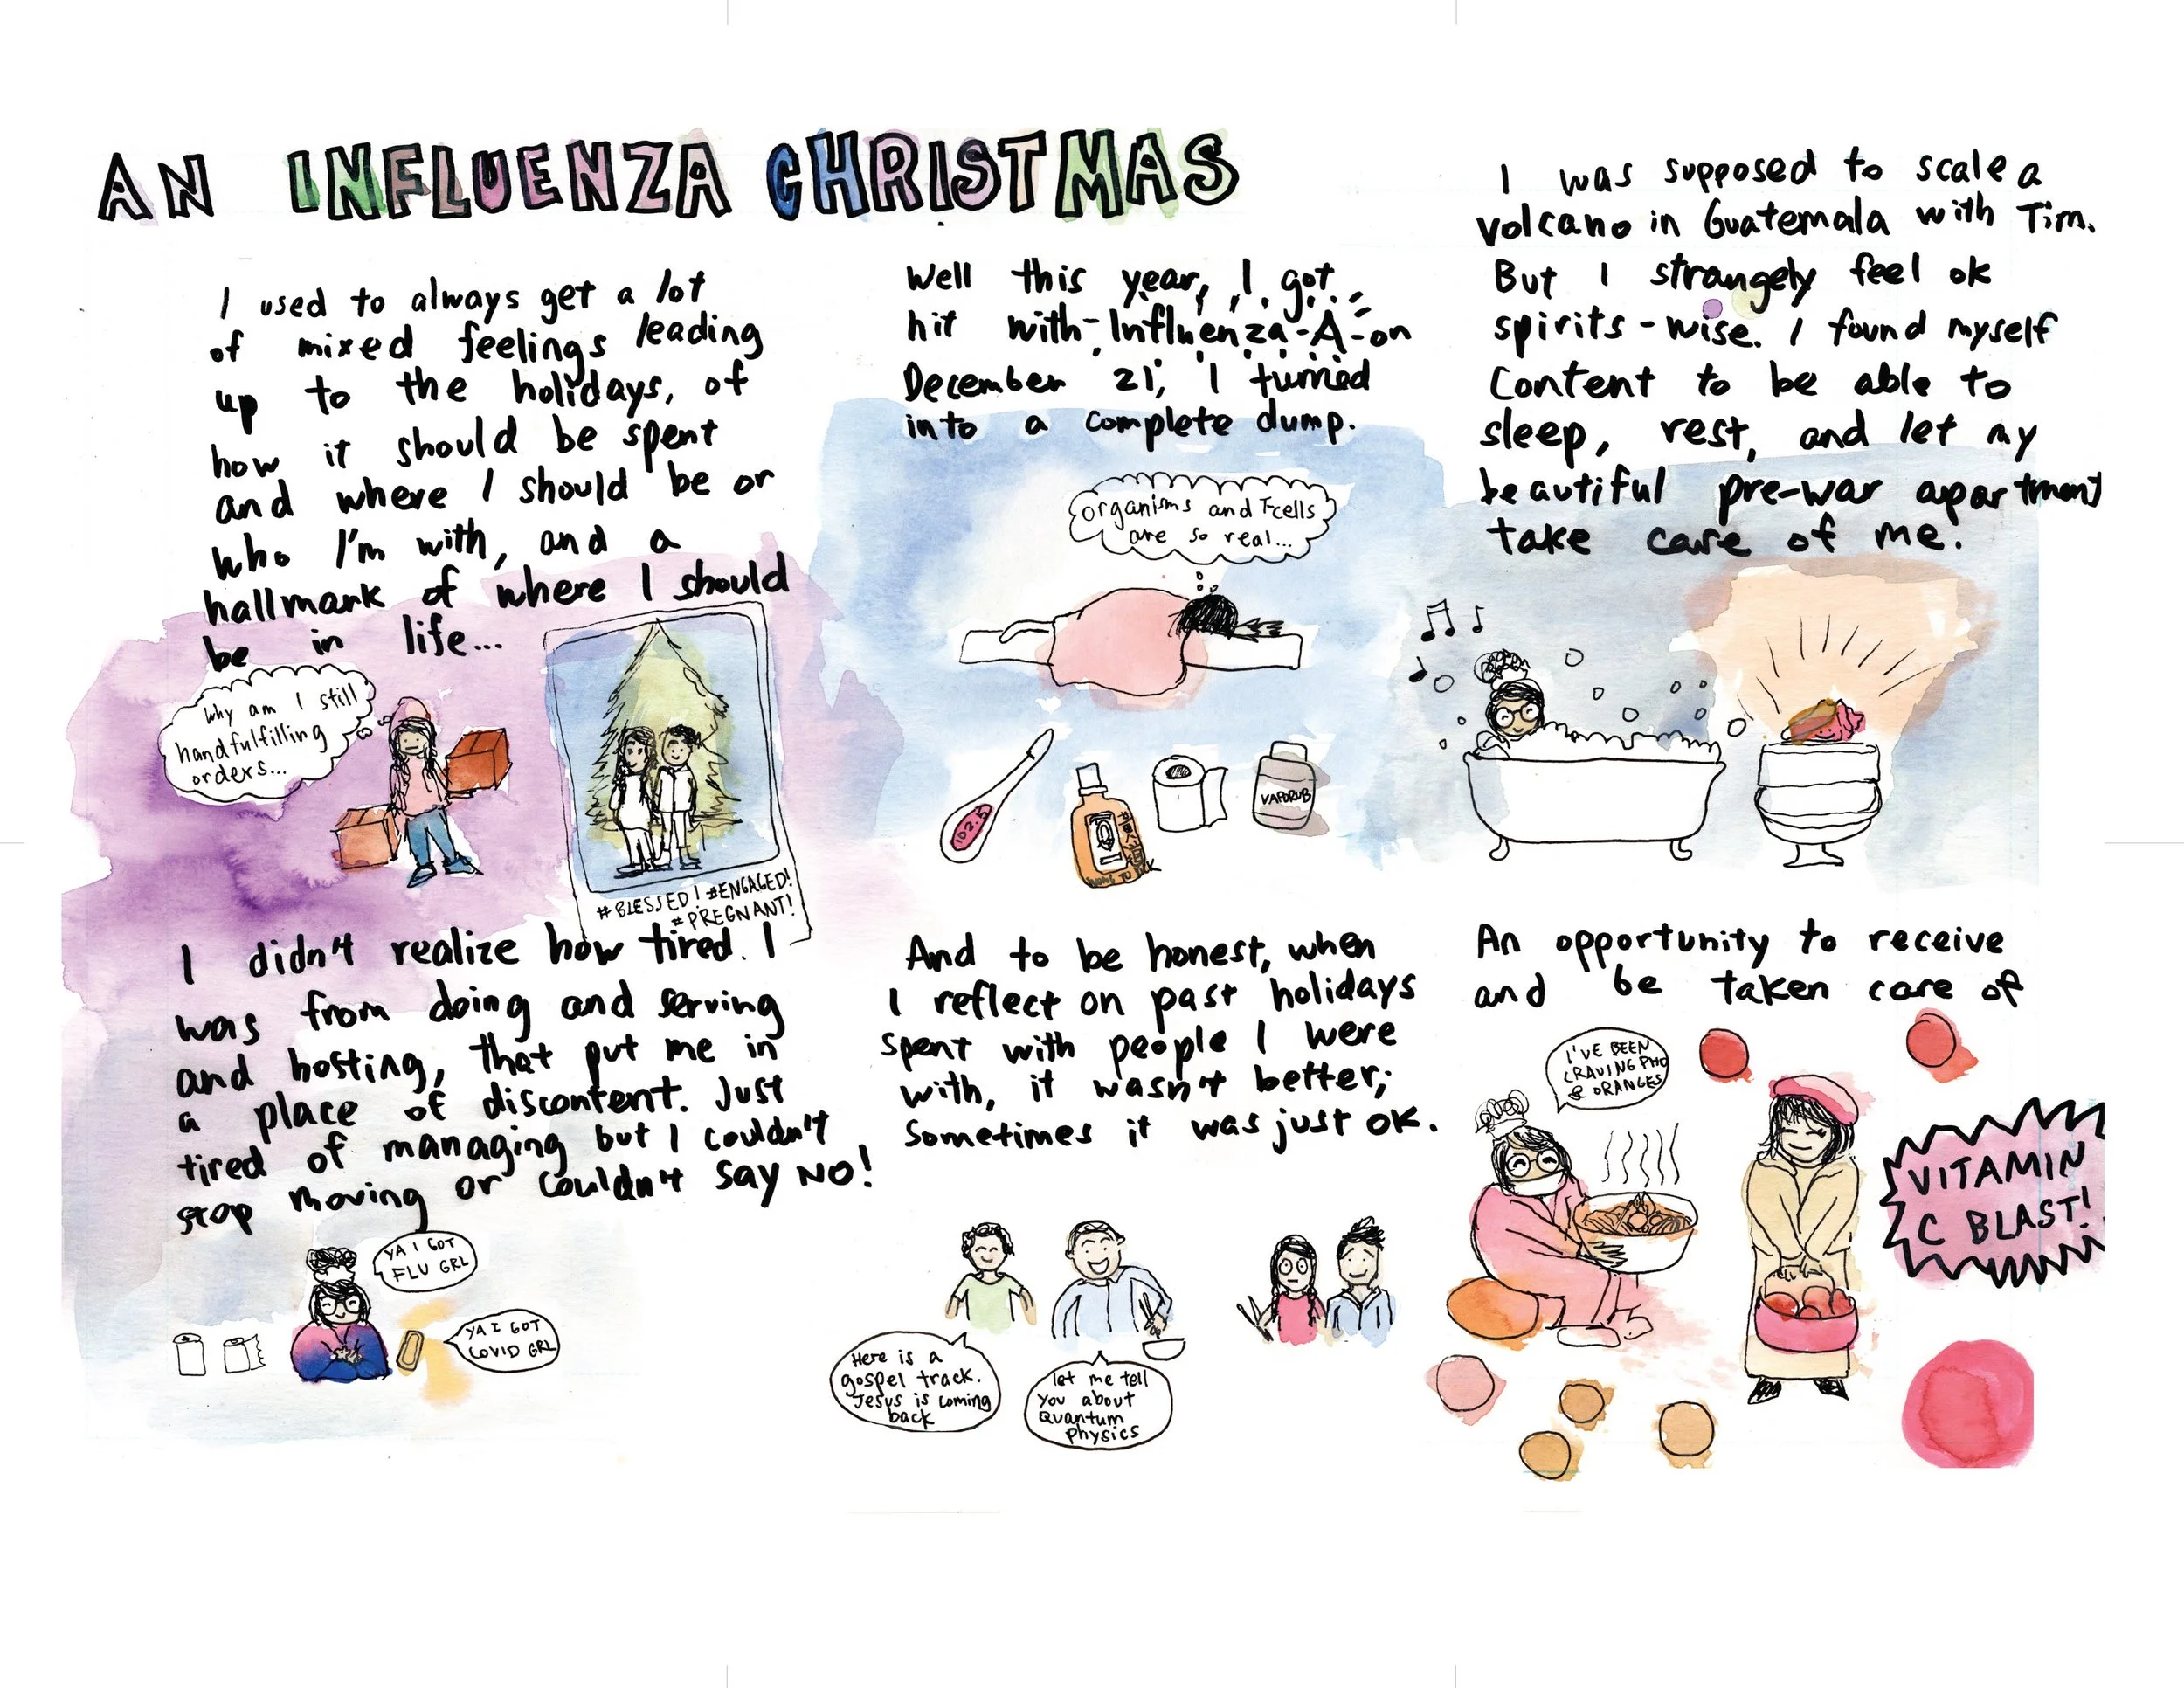 AN INFLUENZA CHRISTMAS
I used to always get a lot
of mixed feelings leading
up to the holidays, of
how it should be spent
and where I should be or
who I'm with, and a
hallmark of where I should
be in life...
Why am I still
handfulfilling
orders...
#BLESSED! #ENGAGED!
#PREGNANT!
Well this year, I got
hit with Influenza-A-on
December 21, I turned
into a complete dump.
organisms and T-cells
are so real...
102.5
VAPORUB
I was supposed to scale a
volcano in Guatemala with Tim.
But I strangely feel ok
spirits-wise. I found myself
content to be able to
sleep, rest, and let my
beautiful pre-war apartment
take care of me!
I didn't realize how tired I
was from doing and serving
and hosting, that put me in
a place of discontent. Just
tired of managing but I couldn't
stop moving or couldn't say NO!
YA I GOT
FLU GRL
YA I GOT
COVID GRL
And to be honest, when
I reflect on past holidays
spent with people I were
with, it wasn't better;
sometimes it was just ok.
Here is a
gospel track.
Jesus is coming
back
let me tell
you about
Quantum
physics
An opportunity to receive
and be taken care of
I'VE BEEN
CRAVING PHO
& ORANGES
VITAMIN
C BLAST!